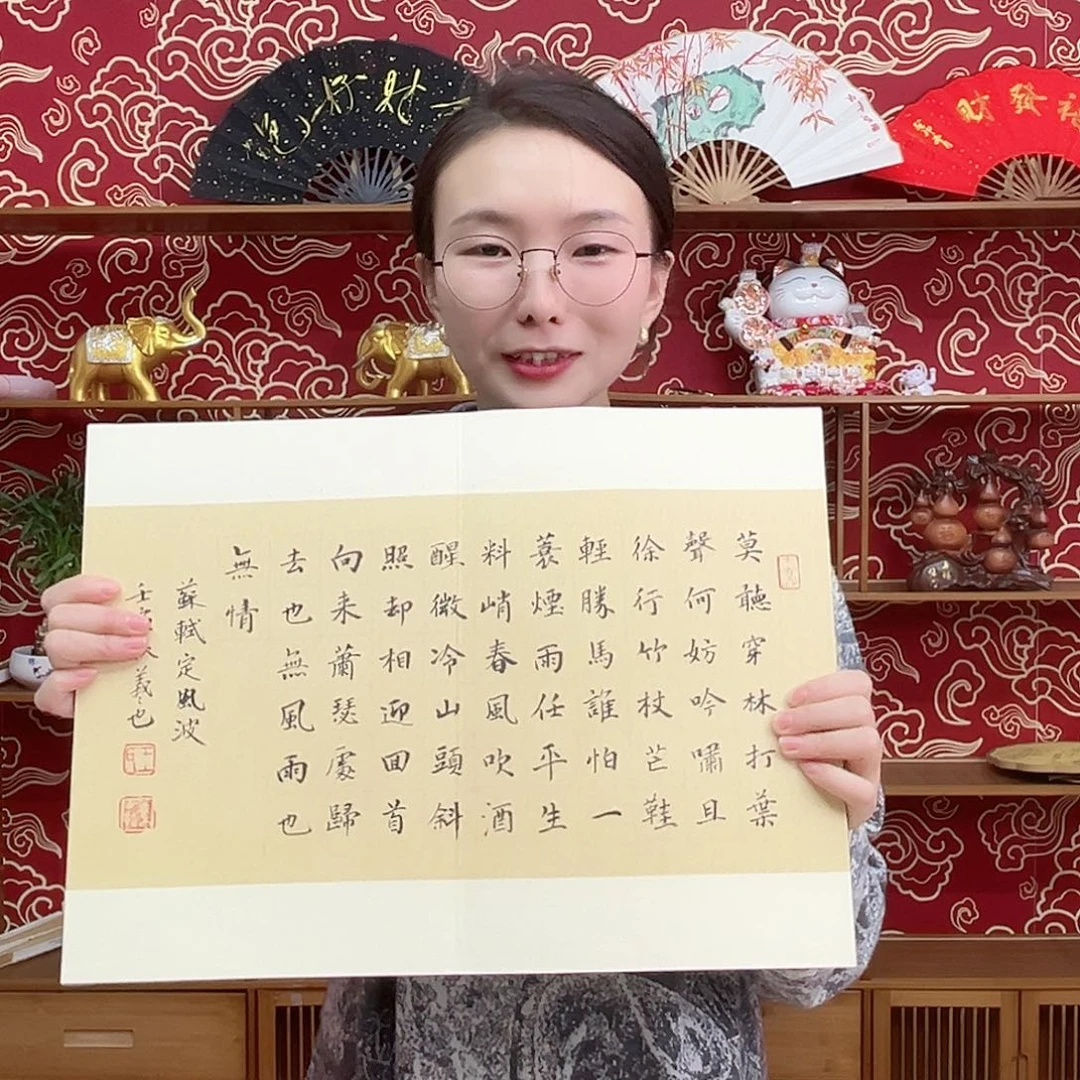 發財
莫聽穿林打葉
聲何妨吟嘯且
徐行竹杖芒鞋
輕勝馬誰怕一
蓑煙雨任平生
料峭春風吹酒
醒微冷山頭斜
照却相迎回首
向来蕭瑟處歸
去也無風雨也
無情
蘇軾定風波
壬義也